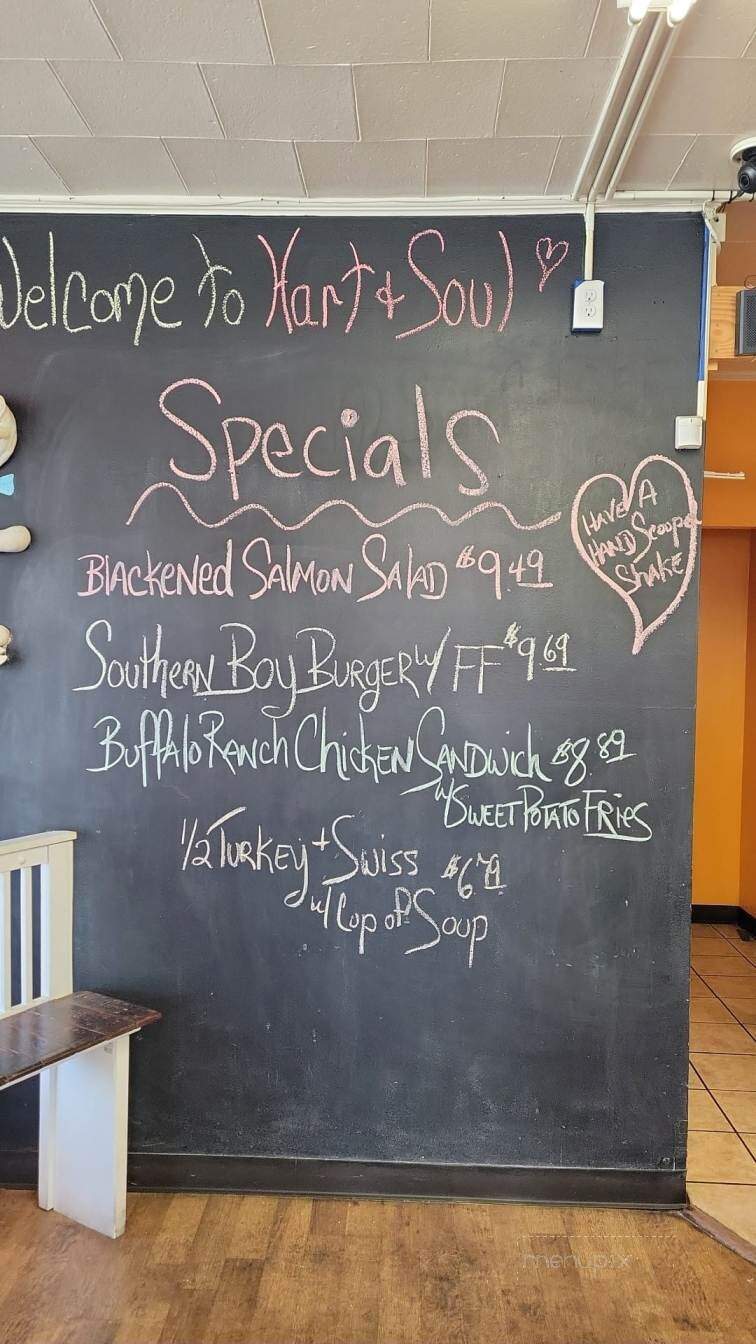 Welcome To Hart & Soul
Specials
HAVE A
HAND Scooped
Shake
Blackened Salmon Salad $9.49
Southern Boy Burger w/ FF $9.69
Buffalo Ranch Chicken Sandwich $8.89
w/ Sweet Potato Fries
1/2 Turkey + Swiss $6.79
w/ Cop of Soup
menupix